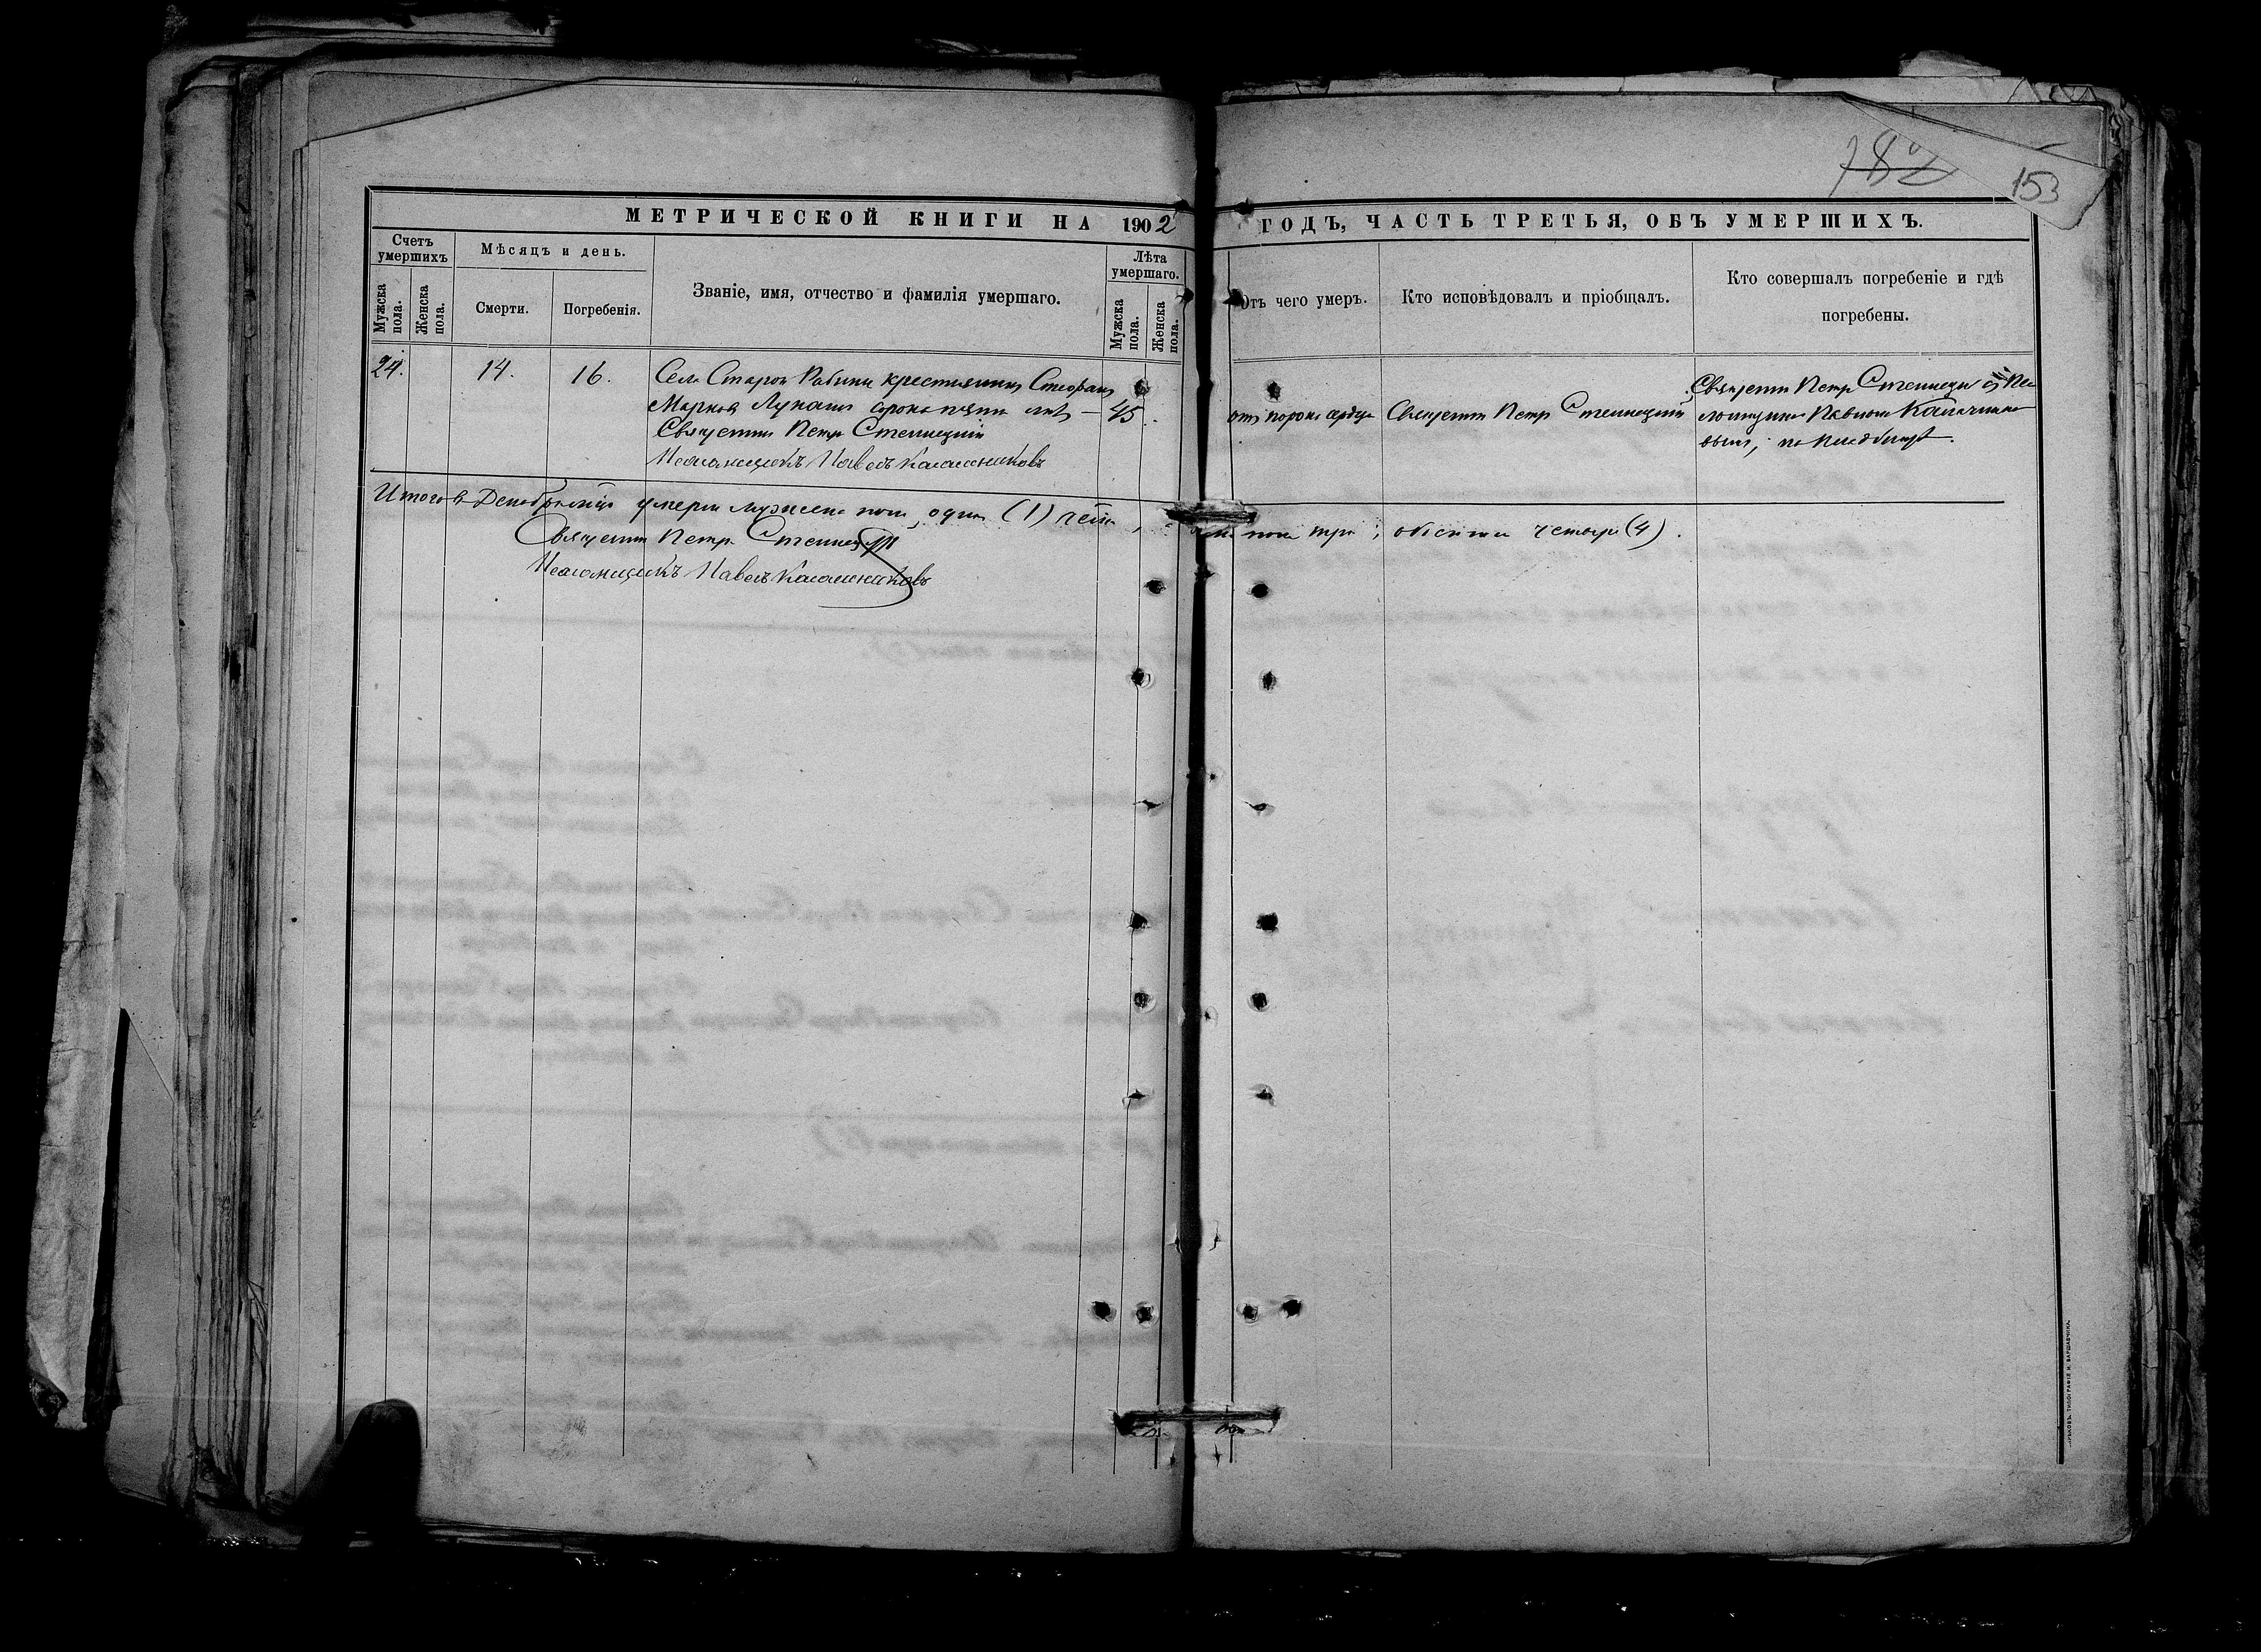 782
153
МЕТРИЧЕСКОЙ КНИГИ НА 1902 ГОДЪ, ЧАСТЬ ТРЕТЬЯ, ОБЪ УМЕРШИХЪ.
Счетъ умершихъ
Мужска пола.
Женска пола.
Мѣсяцъ и день.
Смерти.
Погребенія.
Званіе, имя, отчество и фамилія умершаго.
Лѣта умершаго.
Мужска пола.
Женска пола.
Отъ чего умеръ.
Кто исповѣдовалъ и пріобщалъ.
Кто совершалъ погребеніе и гдѣ
погребены.
24.
14.
16.
Села Старой Рябины крестьянинъ Стефанъ
Марковъ сорока пяти лѣтъ —
45
Священникъ Петръ Стеллецкій
Псаломщикъ Павелъ Калашниковъ
отъ порока сердца
Священникъ Петръ Стеллецкій
Священникъ Петръ Стеллецкій съ Пса
ломщикомъ Павломъ Калашнико
вымъ, на кладбищѣ.
Итого въ Декабрѣ умерли мужеска пола одинъ (1) пола три; обоего пола четыре (4).
Священникъ Петръ Стеллецкій
Псаломщикъ Павелъ Калашниковъ
ТИПОГРАФІЯ И. ВАРШАВЧИКА.